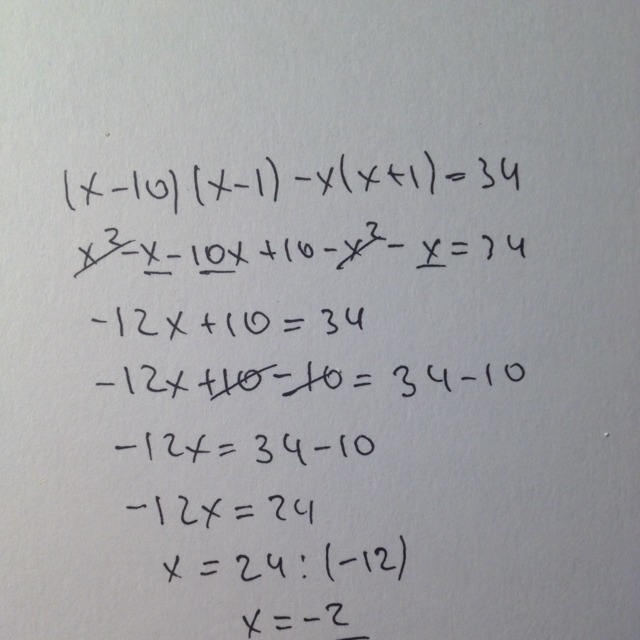 (x-10)(x-1)-x(x+1)=34
x²-x-10x+10-x²-x=34
-12x+10=34
-12x+10-10=34-10
-12x=34-10
-12x=24
x=24:(-12)
x=-2